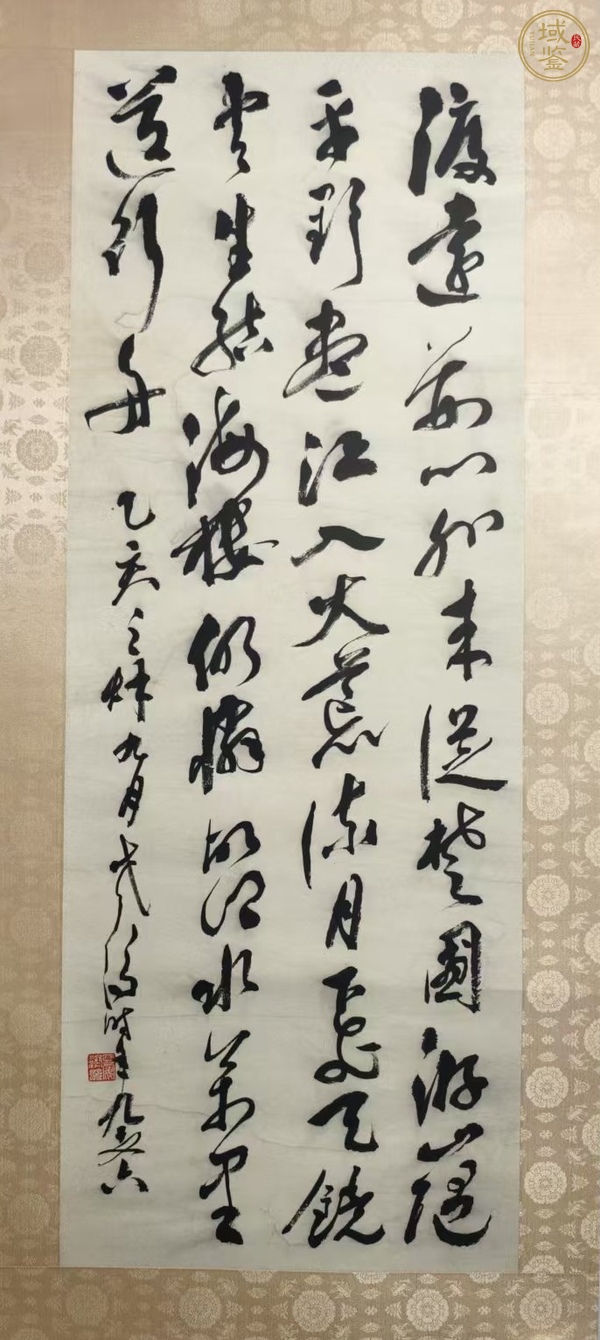 渡遠荆门外来從楚國游山隨
平野盡江入大荒流月下飛天鏡
雲生結海樓仍憐故鄉水萬里
送行舟 乙亥之秋九月 時年
域鉴